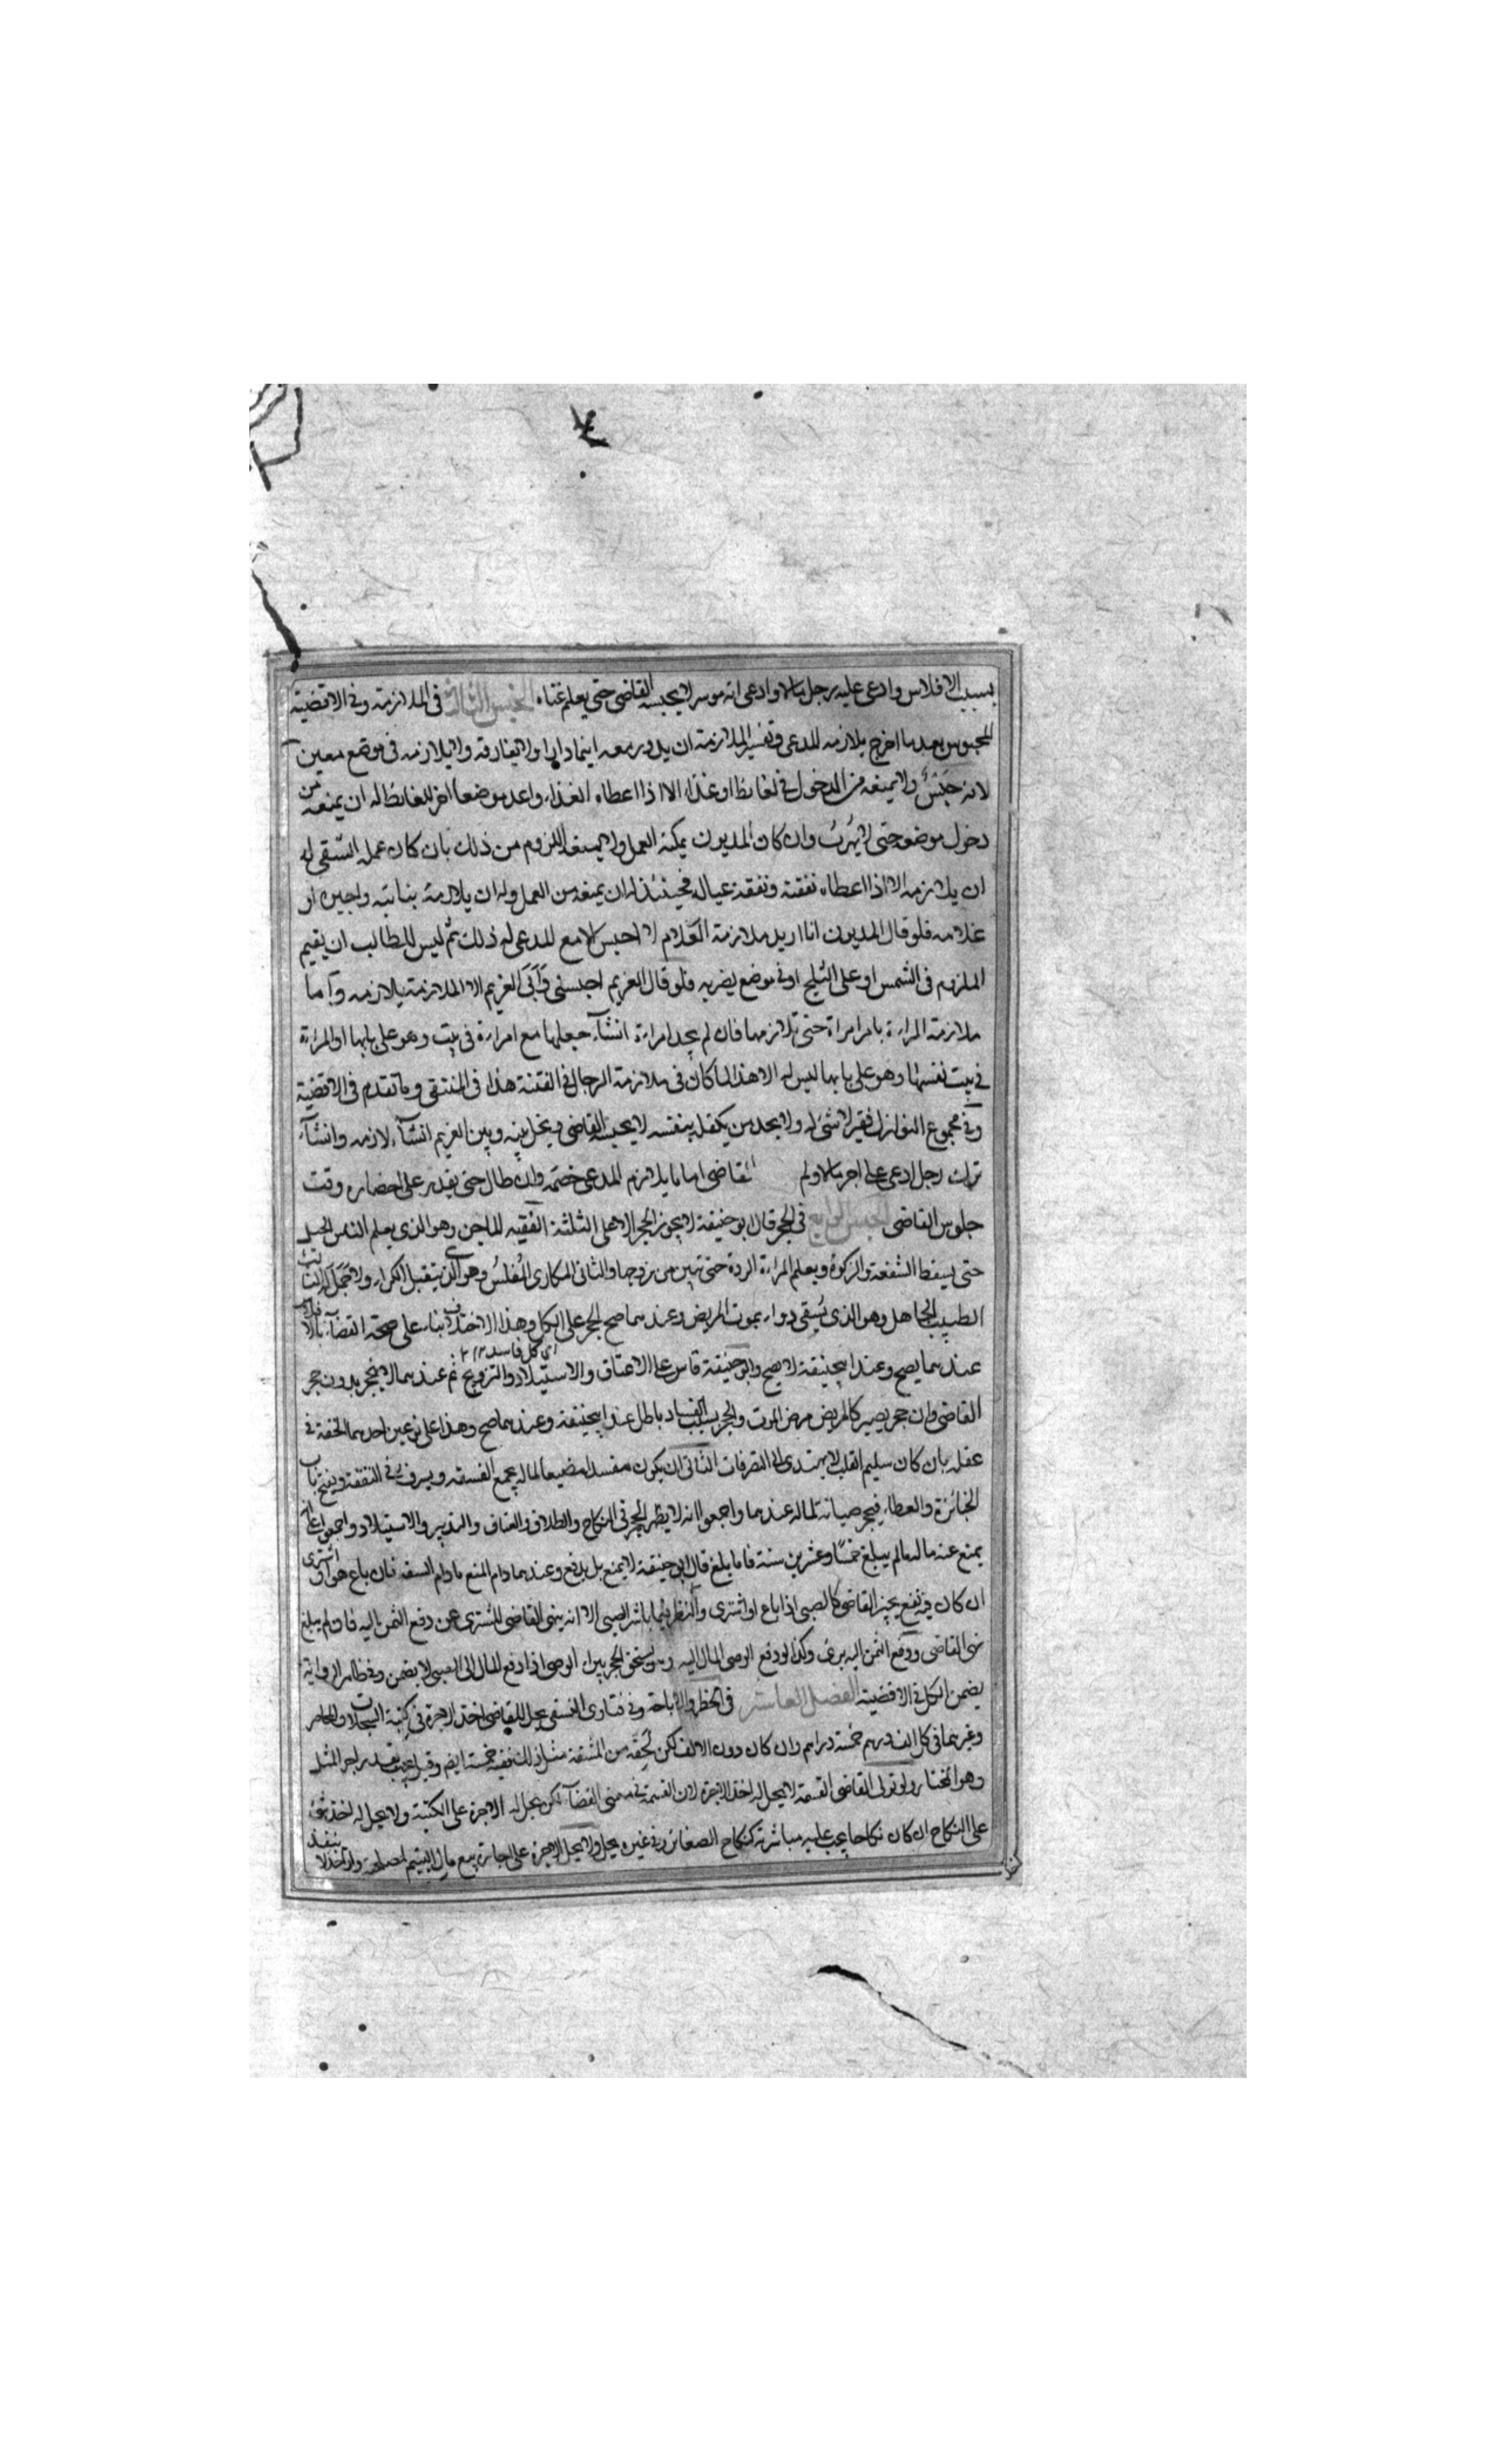 بسبب الافلاس وادعى عليه رجل مالا وادعى انه موسر لا يحبسه القاضى حتى يعلم غناه الجنس الثالث فى الملازمة وفى الاقضية
المحبوس بعد ما اخرج يلازمه المدعى وتفسير الملازمة ان يدور معه اينما دار ولا يفارقه ولا يلازمه فى موضع معين
لانه حبس ولا يمنعه من الدخول فى لغائط او غذاء الا اذا اعطاه الغذاء واعد موضعا اخر للغائط له ان يمنعه من
دخول موضعه حتى لا يهرب وان كان المديون يمكنه العمل ولا يمنعه اللزوم من ذلك بان كان عمله السقى له
ان يلازمه الا اذا اعطاه نفقته ونفقة عياله فحينئذ له ان يمنعه من العمل وله ان يلازمه بنائبه واجيره او
غلامه فلو قال المديون انا اريد ملازمة لا احبس الا مع المدعى له ذلك ثم ليس للطالب ان يقيم
الملزوم فى الشمس او على الثلج او فى موضع يضر به فلو قال الغريم احبسنى وابى الغريم الا الملازمة يلازمه واما
ملازمة المراة بامر امراة حتى تلازمها فان لم يجد امراة ان شآء جعلها مع امراة فى بيت وهو على بابها او المراة
فى بيت نفسها وهو على بابها ليس له الا هذا لما كان فى ملازمة الرجال فى الفتنة هذا فى المنتقى وما تقدم فى الاقضية
وفى مجموع النوازل فقير لا شئ له ولا يجد من يكفل بنفسه لا يحبسه القاضى ويخلى بينه وبين الغريم ان شآء لازمه وان شآء
ترك رجل ادعى على اخر مالا ولم القاضى اياما يلازم المدعى خصمه وان طال حتى يقدر على احضاره وقت
جلوس القاضى الجنس الرابع فى الحجر قال ابو حنيفة لا يجوز الحجر الا على الثلثة الفقيه الماجن وهو الذى يعلم الناس الحيل
حتى يسقط الشفعة والزكوة ويعلم المراة الردة حتى تبين من زوجها والثانى المكارى المفلس وهو الذى يتقبل الكراء ولا جمل له الثالث
الطبيب الجاهل وهو الذى يسقى دواء يموت المريض وعندهما صح الحجر على الكل وهذا الاختلاف بناء على صحة القضآء بالافلاس
اى كل فاسد ١٢
عندهما يصح وعند ابيحنيفة لا يصح وابو حنيفة قاس على الاعتاق والاستيلاد والتزويج ثم عندهما لا ينحجر بدون حجر
القاضى وان حجر يصير كالمريض مرض الموت والحجر بسبب الفساد باطل عند ابيحنيفة وعندهما صح وهذا على نوعين احدهما الخفة فى
عقله بان كان سليم القلب لا يهتدى الى التصرفات الثانى ان يكون مفسدا مضيعا لماله يجمع الفسقة ويسرف فى النفقة ويفتح باب
الجائزة والعطاء فيحجر صيانة لماله عندهما واجمعوا انه لا يظهر الحجر فى النكاح والطلاق والعتاق والتدبير والاستيلاد واجمعوا على انه
يمنع عنه ماله ما لم يبلغ خمسا وعشرين سنة فاما بلغ قال ابو حنيفة لا يمنع بل يدفع وعندهما دام المنع ما دام السفه فان باع هو او اشترى
ان كان فيه نفع يجيز القاضى كالصبى اذا باع او اشترى والنظر فيما باشر الصبى الا انه ينهى القاضى المشترى عن دفع الثمن اليه فاو لم يبلغ
نهى القاضى ودفع الثمن اليه برئ وكذا لو دفع الوصى المال اليه ويستحق الحجر ببراء الوصى اذا دفع المال الى الصبى لا يضمن وفى ظاهر الرواية
يضمن الكل فى الاقضية الفصل العاشر فى الحظر والاباحة وفى فتاوى النسفى يحل للقاضى اخذ الاجرة فى كتبة السجلات والمحاضر
وغيرهما فى كل الف درهم خمسة دراهم وان كان دون الالف لكن لحقه من المشقة مثل ذلك ففيه خمسة ايضا وقيل يجب بقدر اجر المثل
وهو المختار ولو تولى القاضى القسمة لا يحل له اخذ الاجرة لان القسمة فى معنى القضآء لكن يحل له الاجرة على الكتبة ولا يحل له اخذ شئ
على النكاح ان كان نكاحا يجب عليه مباشرته كنكاح الصغائر وفى غيره يحل ولا يحل الاجرة على اجازة بيع مال اليتيم لمصلحة ولو اخذ لا ينفذ